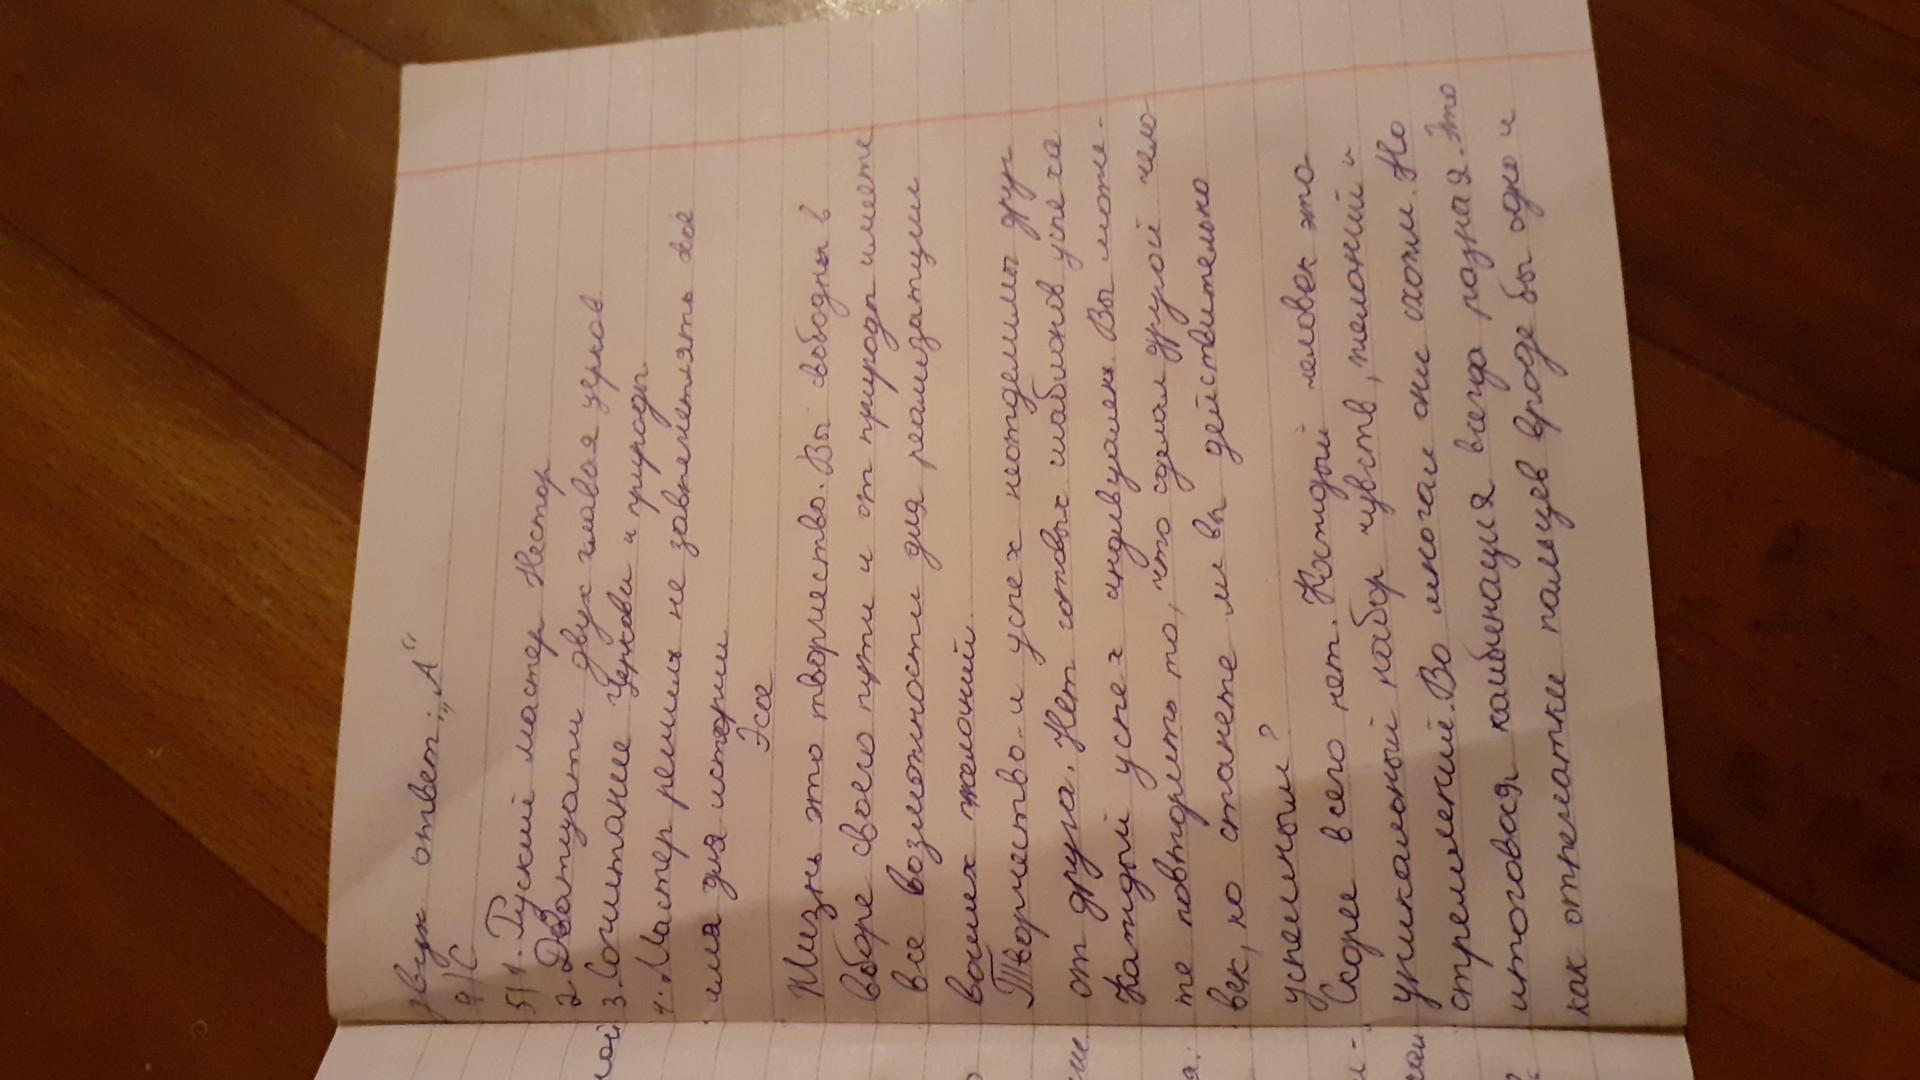 звук ответ: „А“
4) С
5) 1. Руский мастер Нестор
2 Дватцати двух главая церков
3. Сочитание церкови и природы
4. Мастер решил не запечетлять своё
имя для истории
Эсе
Жизнь это творчество. Вы свободны в
выборе своего пути и от природы имеете
все возможности для реализатции
ваших желаний.
Творчество и успех неотделимы друг
от друга. Нет готовых шаблонов успеха
каждый успех индивуален. Вы може-
те повторить то, что сделал другой чело-
век, но станете ли вы действительно
успешным?
Скорее всего нет. Каждый человек это
уникальный набор чувств, желаний и
стремлений. Во многом они схожи. Но
итоговая комбенация всегда разная. Это
как отпечатки пальцев вроде бы одно и
ной